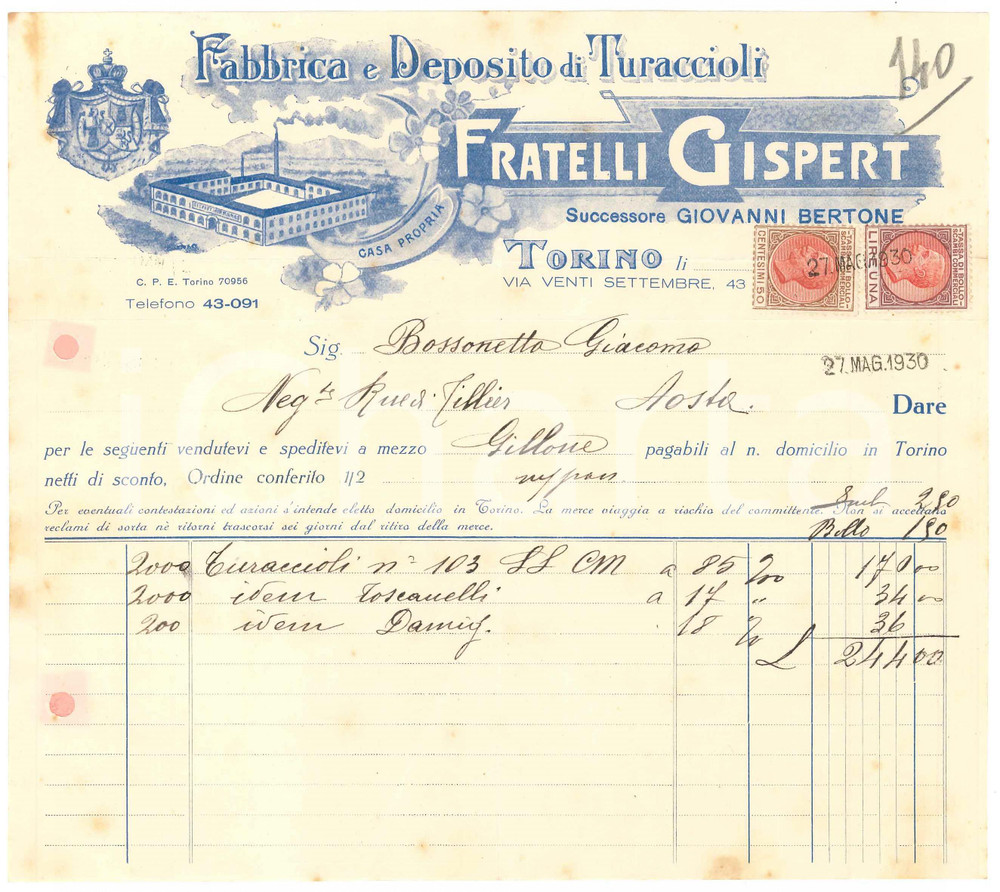 Fabbrica e Deposito di Turaccioli
140
FRATELLI GISPERT
Successore GIOVANNI BERTONE
CASA PROPRIA
TORINO li
VIA VENTI SETTEMBRE, 43
C. P. E. Torino 70956
Telefono 43-091
CENTESIMI 50
TASSA DI BOLLO
SCAMBI COMMERCIALI
LIRE UNA
TASSA DI BOLLO
SCAMBI COMMERCIALI
27 MAG.1930
Sig. Bossonetto Giacomo
27.MAG.1930
Negte Rue di Tillier Aosta. Dare
per le seguenti vendutevi e speditevi a mezzo Gillone pagabili al n. domicilio in Torino
netti di sconto, Ordine conferito 1/2
Per eventuali contestazioni ed azioni s'intende eletto domicilio in Torino. La merce viaggia a rischio del committente. Non si accettano
reclami di sorta nè ritorni trascorsi sei giorni dal ritiro della merce.
Imb 2 50
Bollo 1 50
2000 Turaccioli n° 103 SS CM a 85 %00 170 00
2000 idem Toscanelli a 17 " 34 00
200 idem Damig. 18 % 36
L 244 00